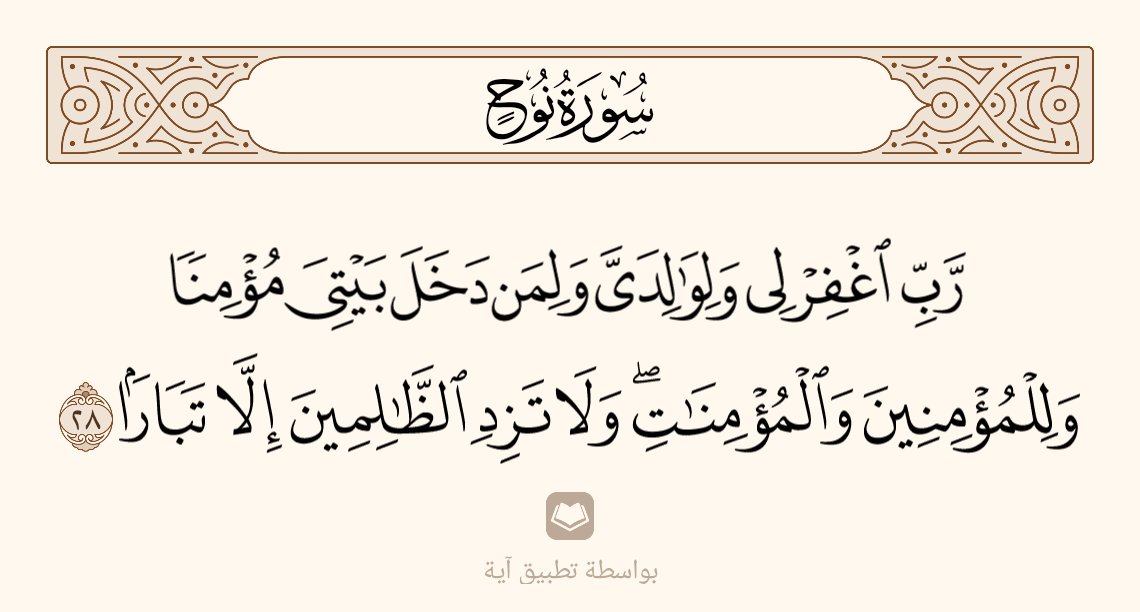 سُورَةُ نُوحٍ
رَّبِّ ٱغْفِرْ لِى وَلِوَٰلِدَىَّ وَلِمَن دَخَلَ بَيْتِىَ مُؤْمِنًا
وَلِلْمُؤْمِنِينَ وَٱلْمُؤْمِنَٰتِۖ وَلَا تَزِدِ ٱلظَّٰلِمِينَ إِلَّا تَبَارًۢا ٢٨
بواسطة تطبيق آية